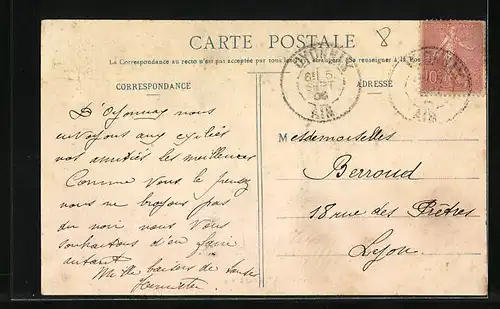 CARTE POSTALE
8
La Correspondance au recto n'est pas acceptée par tous les pays étrangers. (Se renseigner à la Poste
CORRESPONDANCE
ADRESSE
OYONNAX
AIN
10
D'Oyonnax nous
envoyons aux exilées
nos amitiés les meilleures
Comme vous le pensez
nous ne broyons pas
du noir nous vous
souhaitons d'en faire
autant
Mille baisers de toutes
Mesdemoiselles
Berroud
18 rue des Prêtres
Lyon